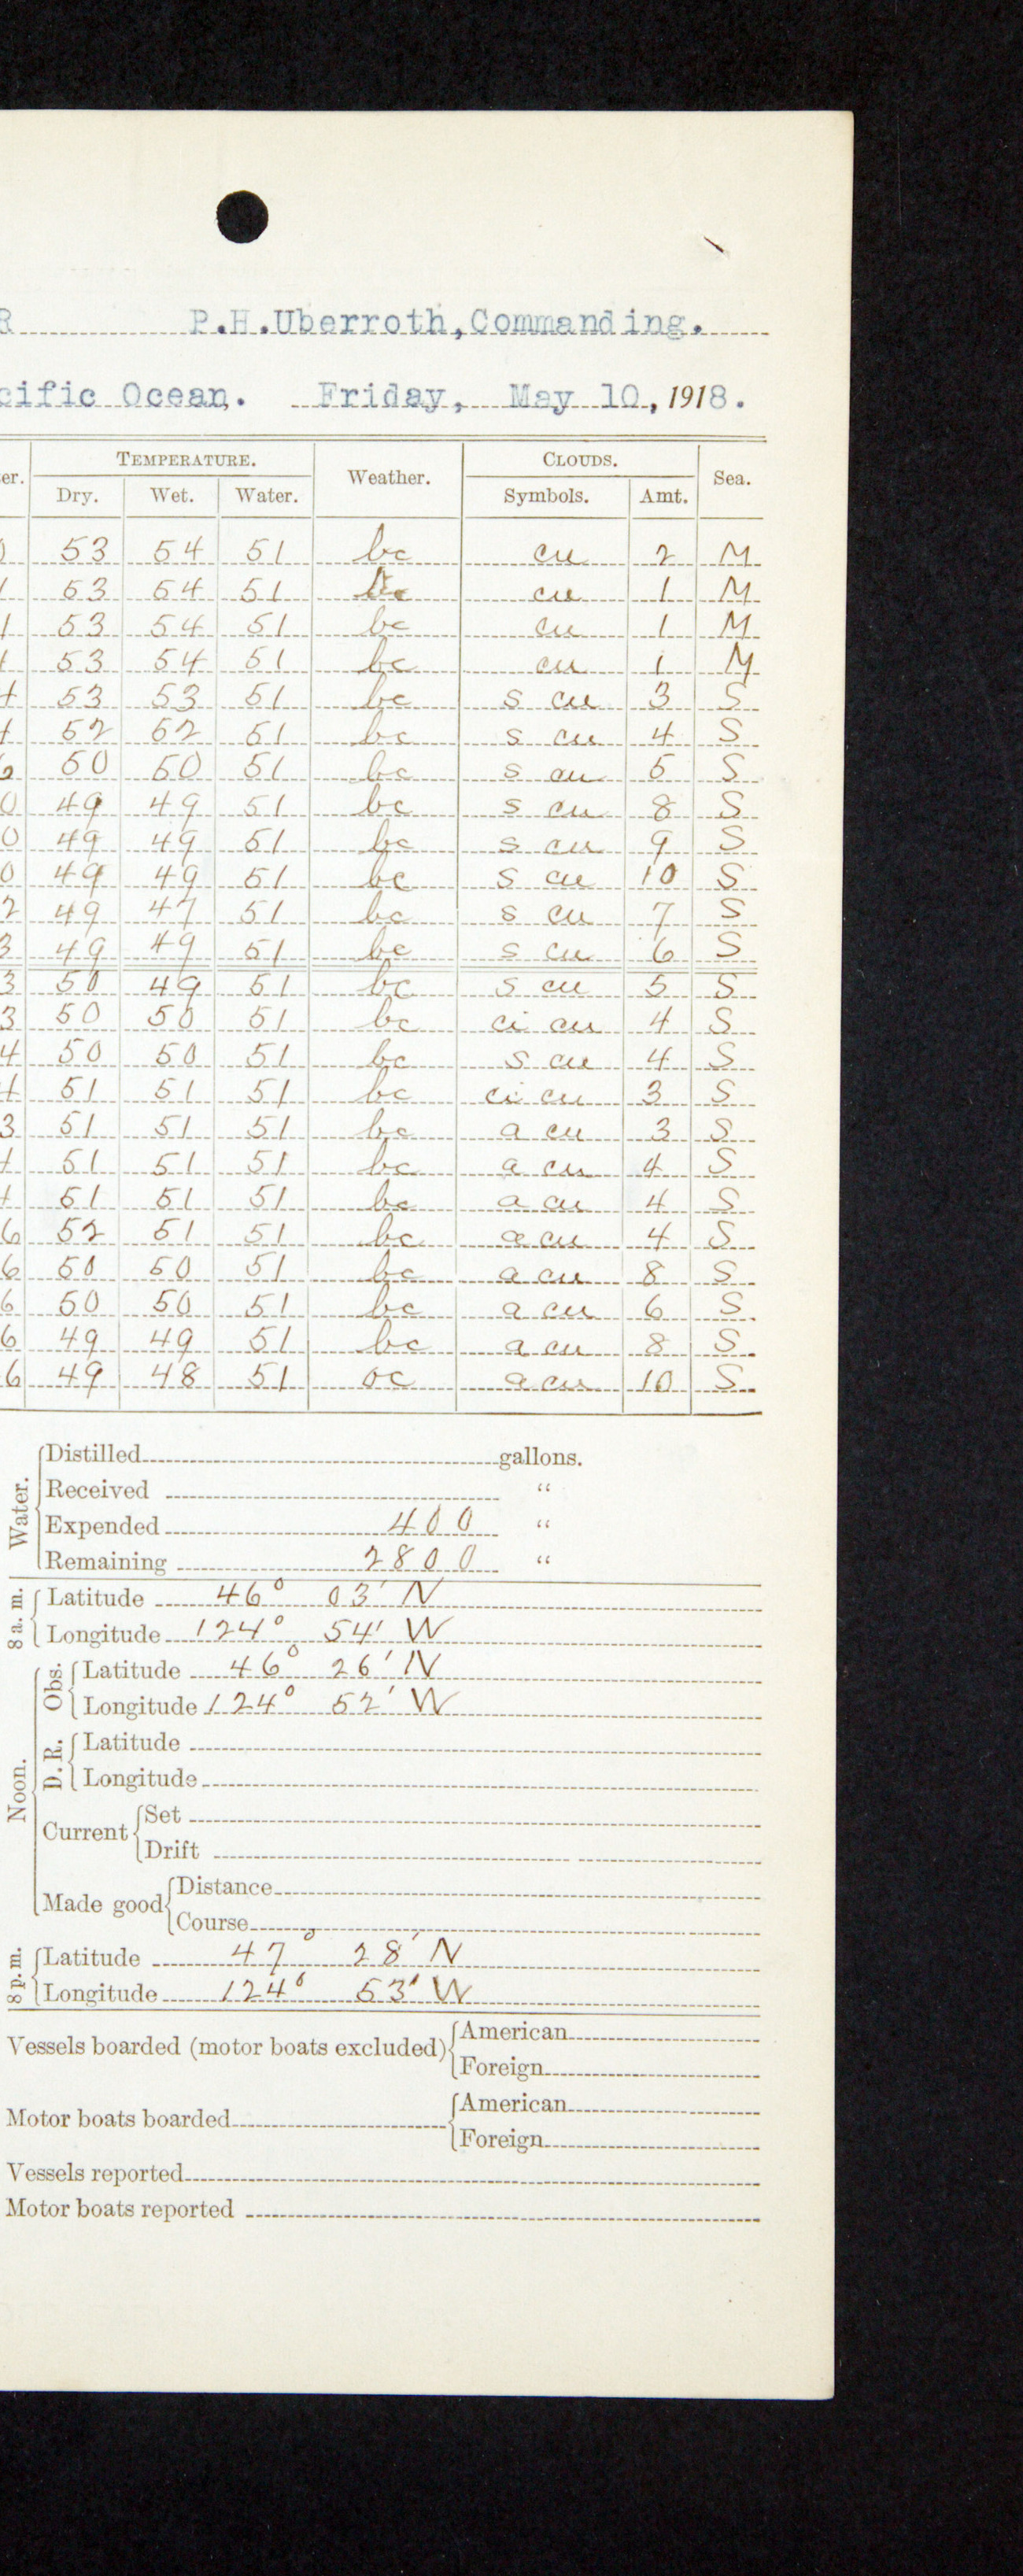 R P.H.Uberroth, Commanding.
cific Ocean. Friday, May 10, 1918.
er. TEMPERATURE. Weather. CLOUDS. Sea.
Dry. Wet. Water. Symbols. Amt.
0 53 54 51 bc cu 2 M
1 53 54 51 bc cu 1 M
1 53 54 51 bc cu 1 M
4 53 54 51 bc cu 1 M
4 53 53 51 bc s cu 3 S
4 52 52 51 bc s cu 4 S
2 50 50 51 bc s cu 5 S
0 49 49 51 bc s cu 8 S
0 49 49 51 bc s cu 9 S
0 49 49 51 bc s cu 10 S
2 49 47 51 bc s cu 7 S
3 49 49 51 bc s cu 6 S
3 50 49 51 bc s cu 5 S
3 50 50 51 bc ci cu 4 S
4 50 50 51 bc s cu 4 S
4 51 51 51 bc ci cu 3 S
3 51 51 51 bc a cu 3 S
4 51 51 51 bc a cu 4 S
4 51 51 51 bc a cu 4 S
6 52 51 51 bc a cu 4 S
6 50 50 51 bc a cu 8 S
6 50 50 51 bc a cu 6 S
6 49 49 51 bc a cu 8 S
6 49 48 51 oc a cu 10 S
Water.
Distilled gallons.
Received "
Expended 400 "
Remaining 2800 "
8 a. m.
Latitude 46° 03' N
Longitude 124° 54' W
Noon.
Obs.
Latitude 46° 26' N
Longitude 124° 52' W
D. R.
Latitude
Longitude
Current
Set
Drift
Made good
Distance
Course
8 p. m.
Latitude 47° 28' N
Longitude 124° 53' W
Vessels boarded (motor boats excluded)
American
Foreign
Motor boats boarded
American
Foreign
Vessels reported
Motor boats reported